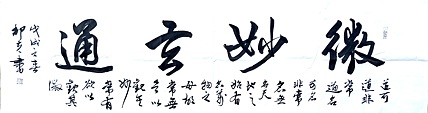 微妙玄通
道可
道非
常
道名
可名
非常
名無
名天
地之
始有
名萬
物之
母故
常無
欲以
觀其
妙
常有
欲以
觀其
徼
戊戌之春